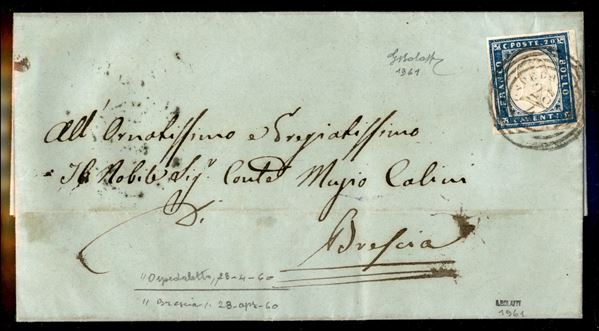 GBolaffi
1961
C. POSTE. 20
FRANCO
BOLLO
C. VENTI
All' Ornatissimo e Pregiatissimo
Il Nobile Sigʳ Conte Muzio Calini
Di
Brescia
"Ospedaletto, 28-4-60
"Brescia". 28-apr-60
A.BOLAFFI
1961